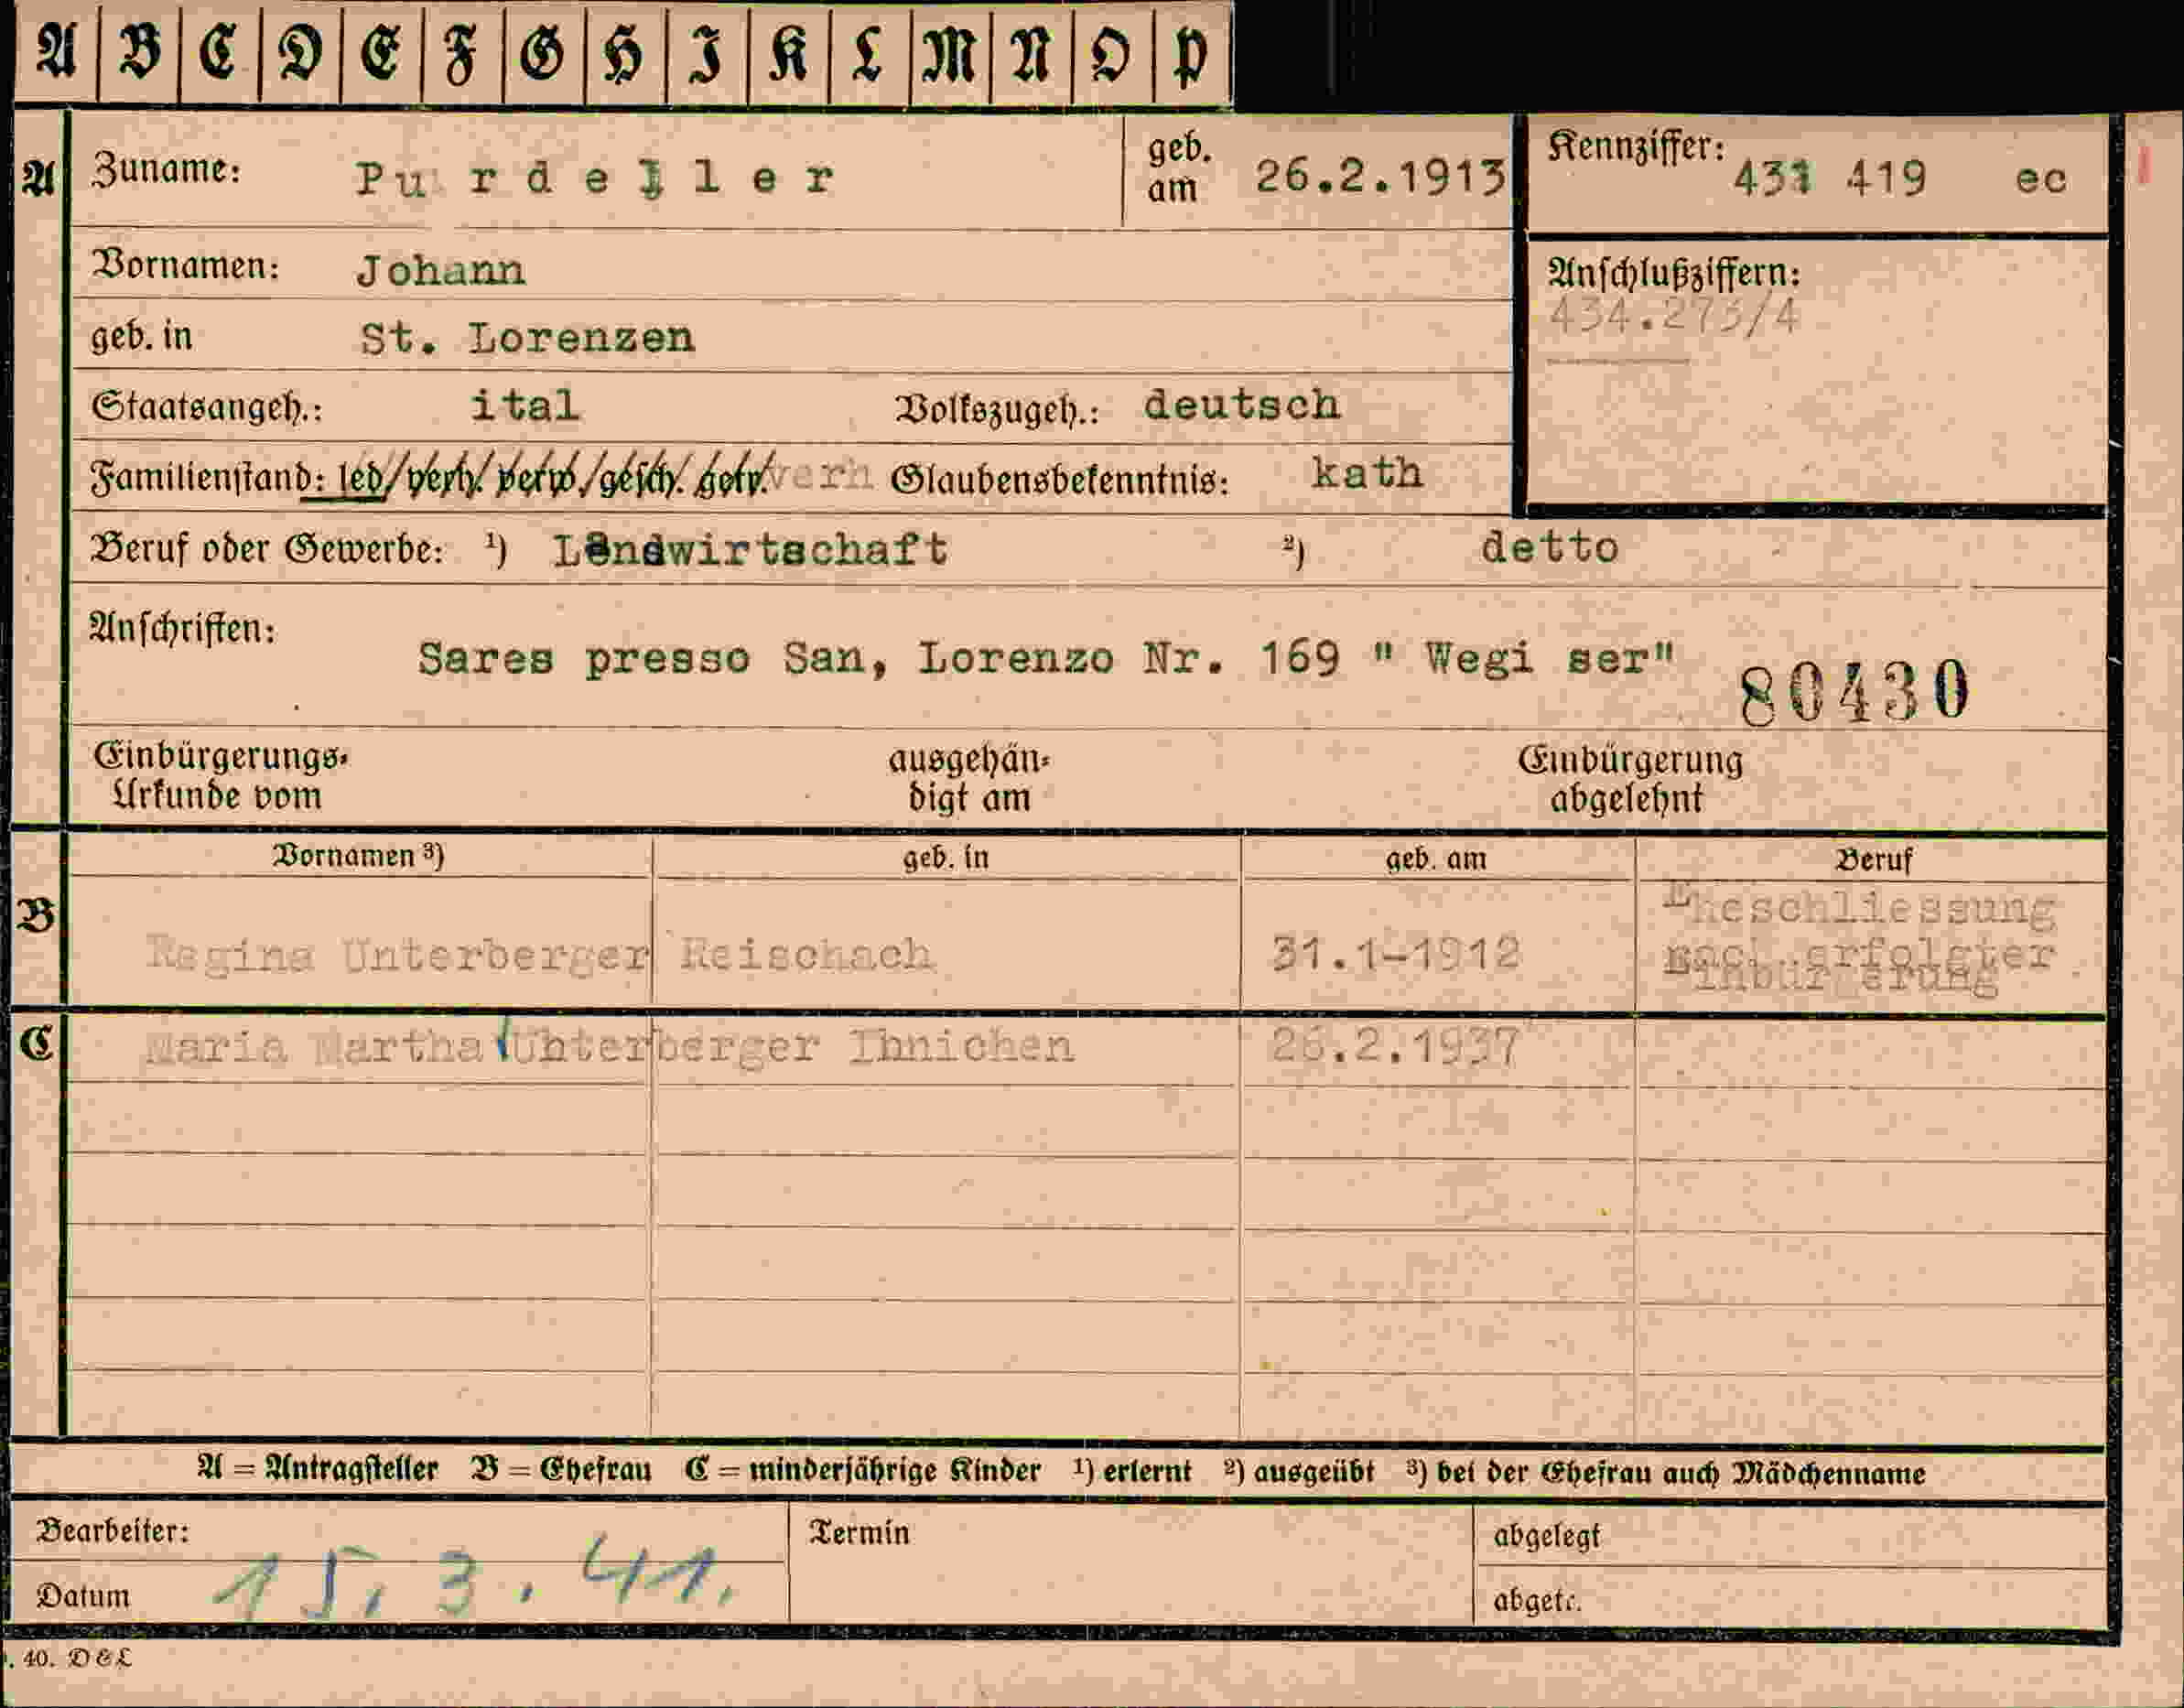 A B C D E F G H I K L M N O P
A Zuname: Purdeller geb. am 26.2.1913 Kennziffer: 431 419 ec
Vornamen: Johann Anschlußziffern:
434.273/4
geb. in St. Lorenzen
Staatsangeh.: ital Volkszugeh.: deutsch
Familienstand: led/verh./verw./gesch./getr. verh Glaubensbekenntnis: kath
Beruf oder Gewerbe: ¹) Landwirtschaft ²) detto
Anschriften:
Sares presso San, Lorenzo Nr. 169 " Wegi ser" 80430
Einbürgerungs-Urkunde vom ausgehändigt am Einbürgerung abgelehnt
Vornamen ³) geb. in geb. am Beruf
B Regina Unterberger Reischach 31.1-1912 Eheschliessung
nach erfolgter
Einbürgerung
C Maria Martha Unterberger Innichen 26.2.1937
A = Antragsteller B = Ehefrau C = minderjährige Kinder ¹) erlernt ²) ausgeübt ³) bei der Ehefrau auch Mädchenname
Bearbeiter: Termin abgelegt
Datum 15.3.41. abgetr.
. 40. D & L